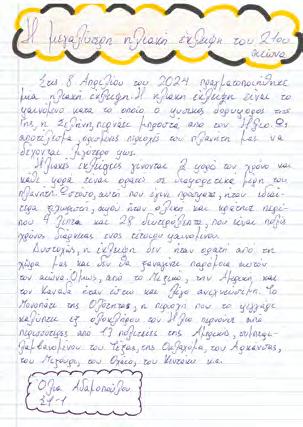 Η μεγαλύτερη ηλιακή έκλειψη του 21ου
αιώνα
Στις 8 Απριλίου του 2024 πραγματοποιήθηκε
μια ηλιακή έκλειψη. Η ηλιακή έκλειψη είναι το
φαινόμενο κατά το οποίο ο φυσικός δορυφόρος της
γης, η Σελήνη, περνάει μπροστά από τον Ήλιο. Ως
αποτέλεσμα ορισμένες περιοχές του πλανήτη μας να
δέχονται λιγότερο φως.
Ηλιακές εκλείψεις γίνονται 2 φορές τον χρόνο και
κάθε φορά είναι ορατές σε διαφορετικά μέρη του
πλανήτη. Ωστόσο, αυτή που έγινε πρόσφατα, ήταν ιδιαί-
τερα σημαντική, αφού ήταν ολική και κράτησε περί-
που 4 λεπτά και 28 δευτερόλεπτα, που είναι πολύς
χρόνος διάρκειας ενός τέτοιου φαινομένου.
Δυστυχώς, η έκλειψη δεν ήταν ορατή από τη
χώρα μας και δεν θα ξαναγίνει παρόμοια αυτόν
τον αιώνα. Όμως, από το Μεξικό, την Αμερική και
τον Καναδά ήταν
Μονοπάτι της Ολότητας, η περιοχή που το φεγγάρι
καλύπτει εξ ολοκλήρου τον Ήλιο περνούσε από
περισσότερες από 13 πολιτείες της Αμερικής, συμπερι-
λαμβανομένου του Τέξας, της Οκλαχόμα, του Αρκάνσας,
του Μιζούρι, του Οχάιο, του Κεντάκι και
Όλια Αδαμοπούλου
Στ-1